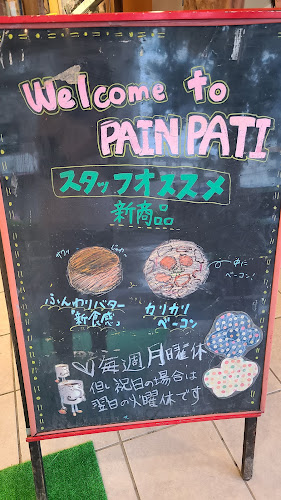 Welcome to
PAIN PATI
スタッフオススメ
新商品
ふんわりバター
「新食感」
カリカリ
ベーコン
中に
ベーコン!
毎週月曜休
但し祝日の場合は
翌日の火曜休です